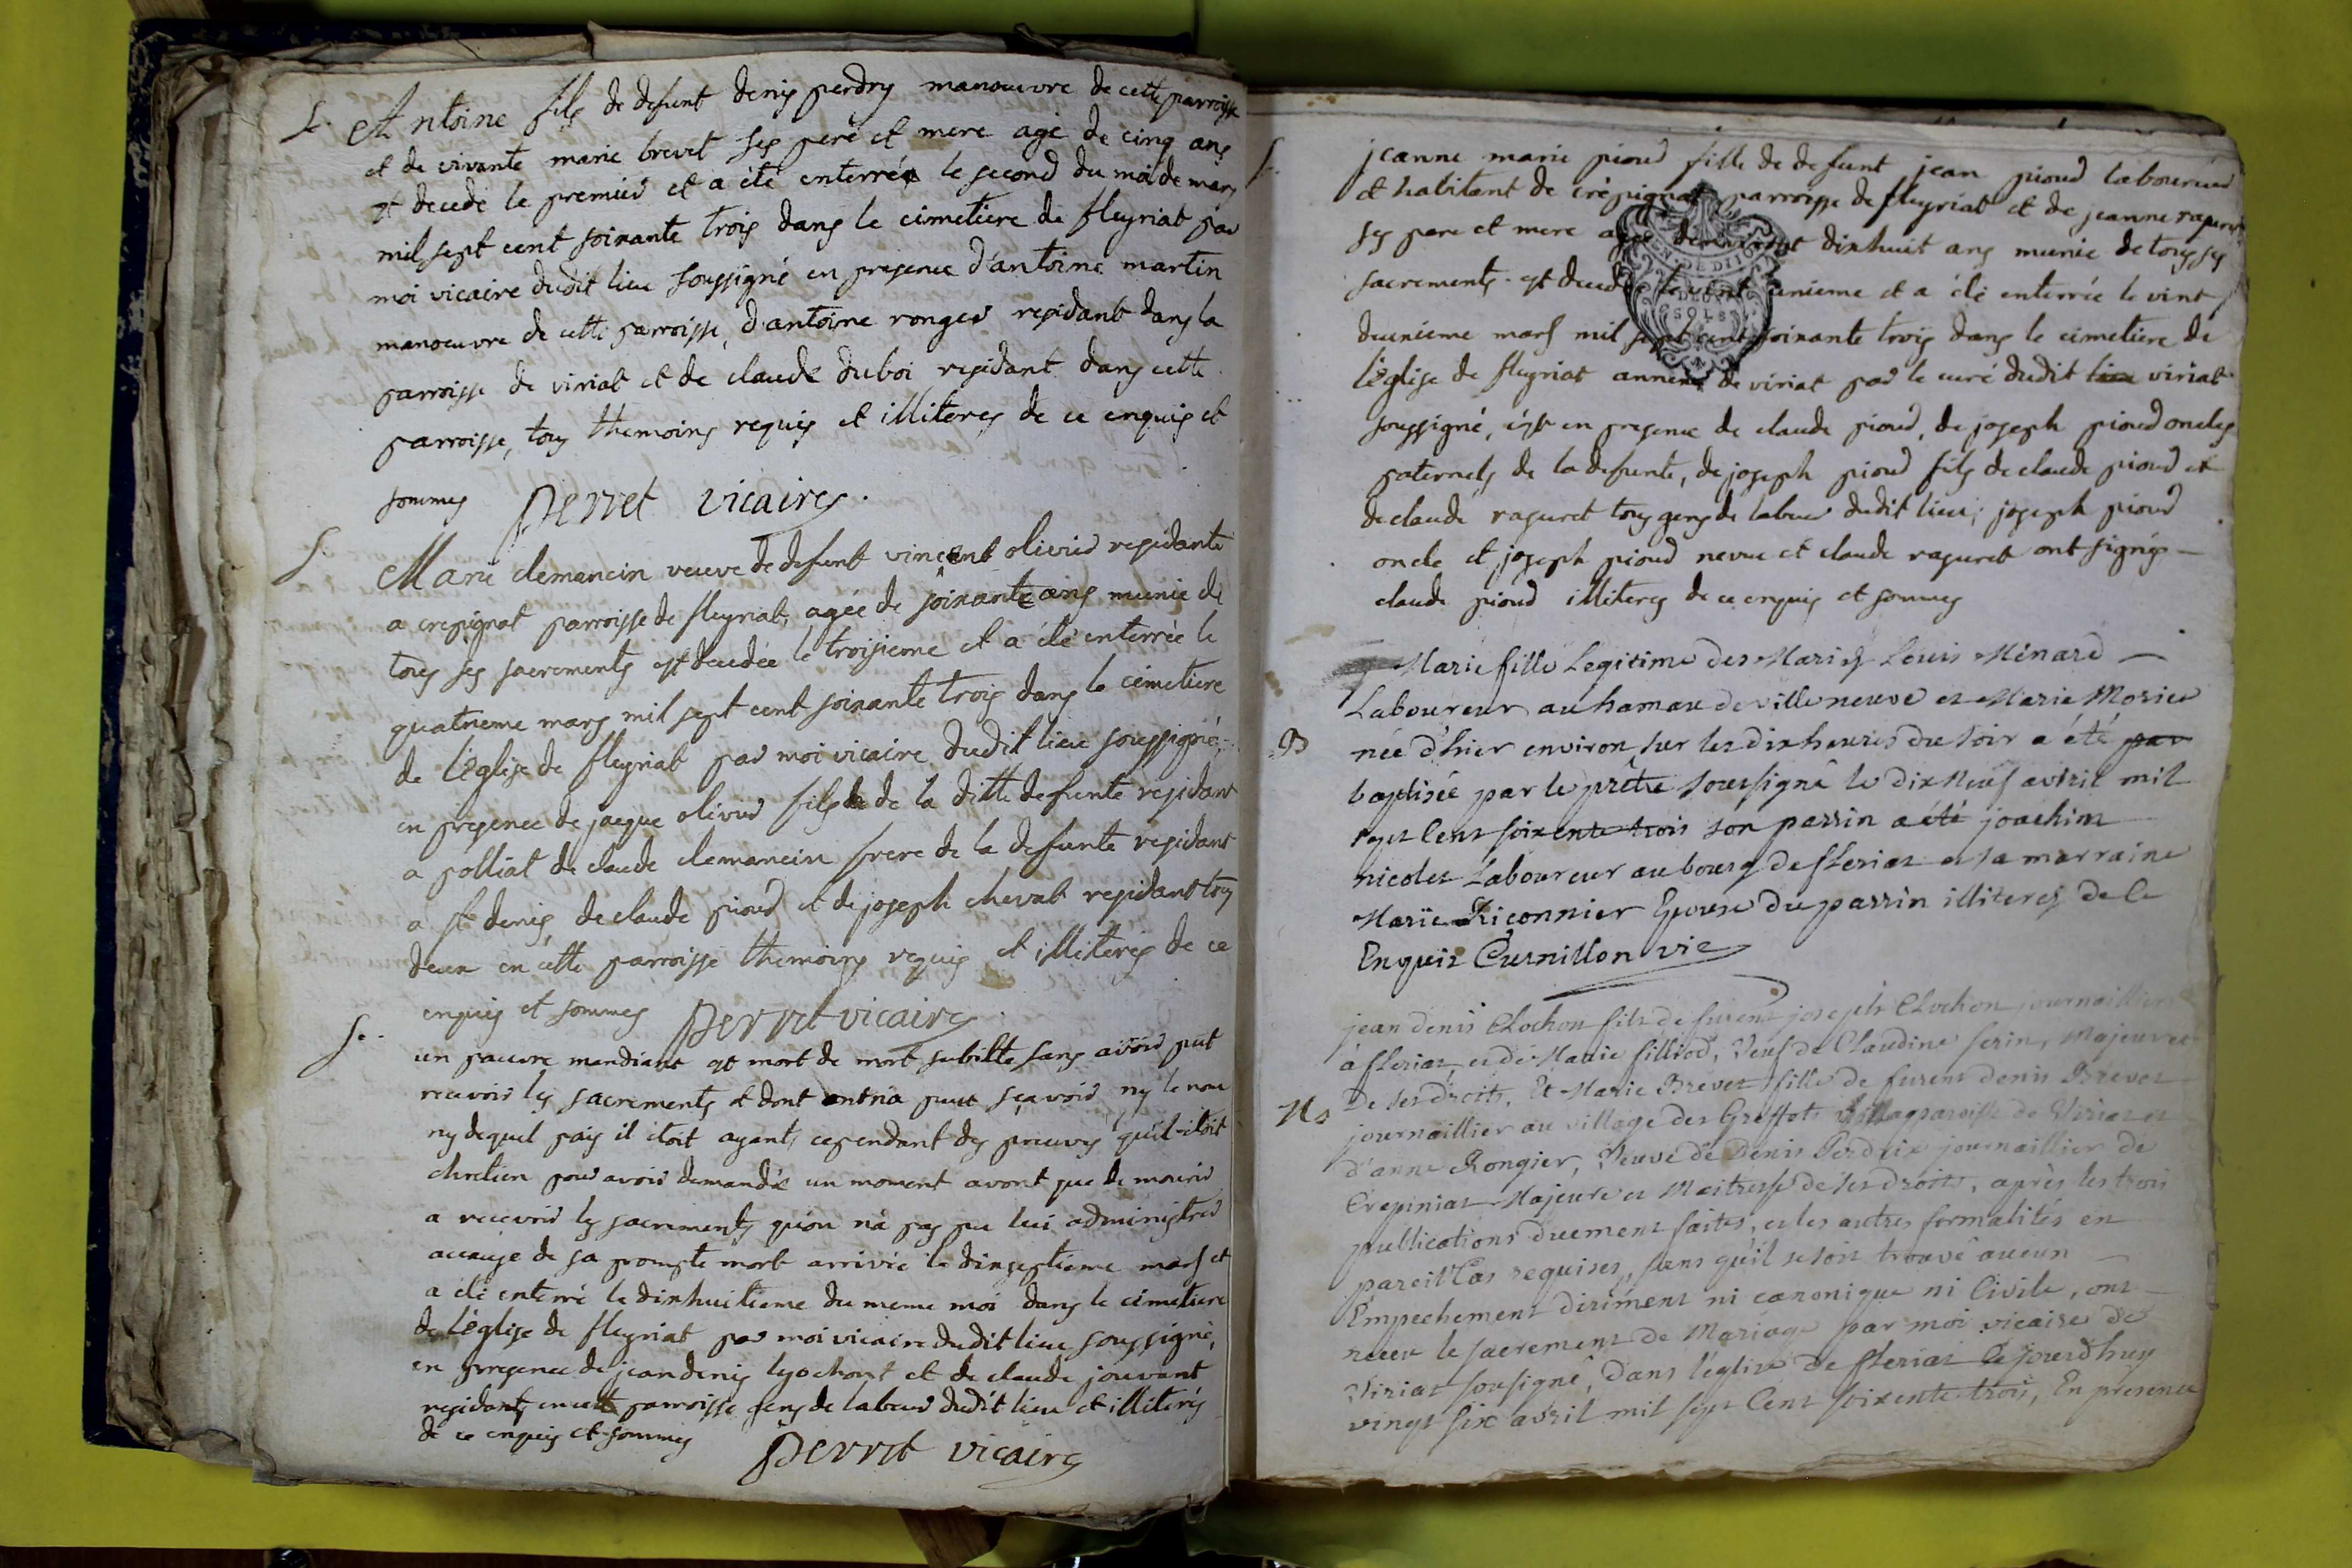 S. Antoine fils de defunt denis perdry manoeuvre de cette parroisse
et de vivante marie brevet ses pere et mere agé de cinq ans
est decedé le premier et a été enterrée le second du moi de mars
mil sept cent soixante trois dans le cimetiere de fleyriat par
moi vicaire dudit lieu soussigné en presence d'antoine martin
manoeuvre de cette parroisse, d'antoine ronger residant dans la
parroisse de viriat et de claude duboi residant dans cette
parroisse, tous themoins requis et illiteres de ce enquis et
sommes Perret vicaires.
S. Marie clemancin veuve de defunt vincent olivier residante
a crepignat parroisse de fleyriat, agée de soixante ans munie de
tous ses sacrements est decedée le troisieme et a été enterrée le
quatrieme mars mil sept cent soixante trois dans le cimetiere
de l'église de fleyriat par moi vicaire dudit lieu soussigné,
en presence de jacque olivier fils de de la ditte defunte residant
a polliat de claude clemancin frere de la defunte residant
a st denis, de claude pioud et de joseph chevat residant tous
deux en cette parroisse themoins requis et illiteres de ce
enquis et sommes Perret vicaire
S. un pauvre mendiant est mort de mort subitte sans avoir put
recevoir les sacrements et dont ont na peut sçavoir ny le nom
ny dequel pais il étoit ayant, cependant des preuves qu'il étoit
chretien pour avoir demandé un moment avant que de mourir
a recevoir les sacrements qu'on n'a pas pu lui administrer
accause de sa prompte mort arrivée le dixseptieme mars et
a été enterré le dixhuitieme du meme moi dans le cimetiere
de l'église de fleyriat par moi vicaire dudit lieu soussigné,
en presence de jean denis lyochont et de claude jouvant
residants en cette parroisse gens de labeur dudit lieu et illiterés
de ce enquis et sommes Perret vicaire
S. jeanne marie pioud fille de defunt jean pioud laboureur
et habitant de crépignat parroisse de fleyriat et de jeanne raguret
ses pere et mere agée dixhuit ans munie de tous ses
sacrements est decedée le vint unieme et a été enterrée le vint
deuxieme mars mil sept cent soixante trois dans le cimetiere de
l'église de fleyriat annexe de viriat par le curé dudit lieu viriat
soussigné, en presence de claude pioud, de joseph pioud oncles
paternels de la defunte, de joseph pioud fils de claude pioud et
de claude raguret tous gens de labeur dudit lieu; joseph pioud
oncle et joseph pioud neveu et claude raguret ont signés
claude pioud illiteres de ce enquis et sommes
Marie fille Legitime des Mariés Louis Ménard
Laboureur au hamau de ville neuve et Marie Morier
B née d'hier environ sur les dix heures du soir a été par
baptisée par le prêtre soussigné le dix neuf avril mil
sept Cent soixente trois son parrin a été joachim
nicolet Laboureur au bourg de fleriat et sa marraine
Marie Riconnier Epouse du parrin illiteres de Ce
Enquis Curnillon vic
jean denis Clochon fils de furent joseph Clochon journaillier
à fleriat, et de Marie filliod, Veuf de Claudine ferin, Majeur et
De ses droits, Et Marie Brevet fille de furent denis Brevet
Ms journaillier au village des Greffets paroisse de Viriat et
d'anne Rongier, Veuve de Denis Perdrix journaillier de
Crepiniat Majeure et Maitresse de ses droits, après les trois
publications duement faites, et les autres formalités en
pareil Cas requises, sans qu'il se soit trouvé aucun
Empechement dirément ni canonique ni Civile, ont
recu le sacrement de Mariage par moi vicaire de
Viriat sousigné, dans l'église de fleriat Ce jourd'huy
vingt six avril mil sept Cent soixente trois, En presence